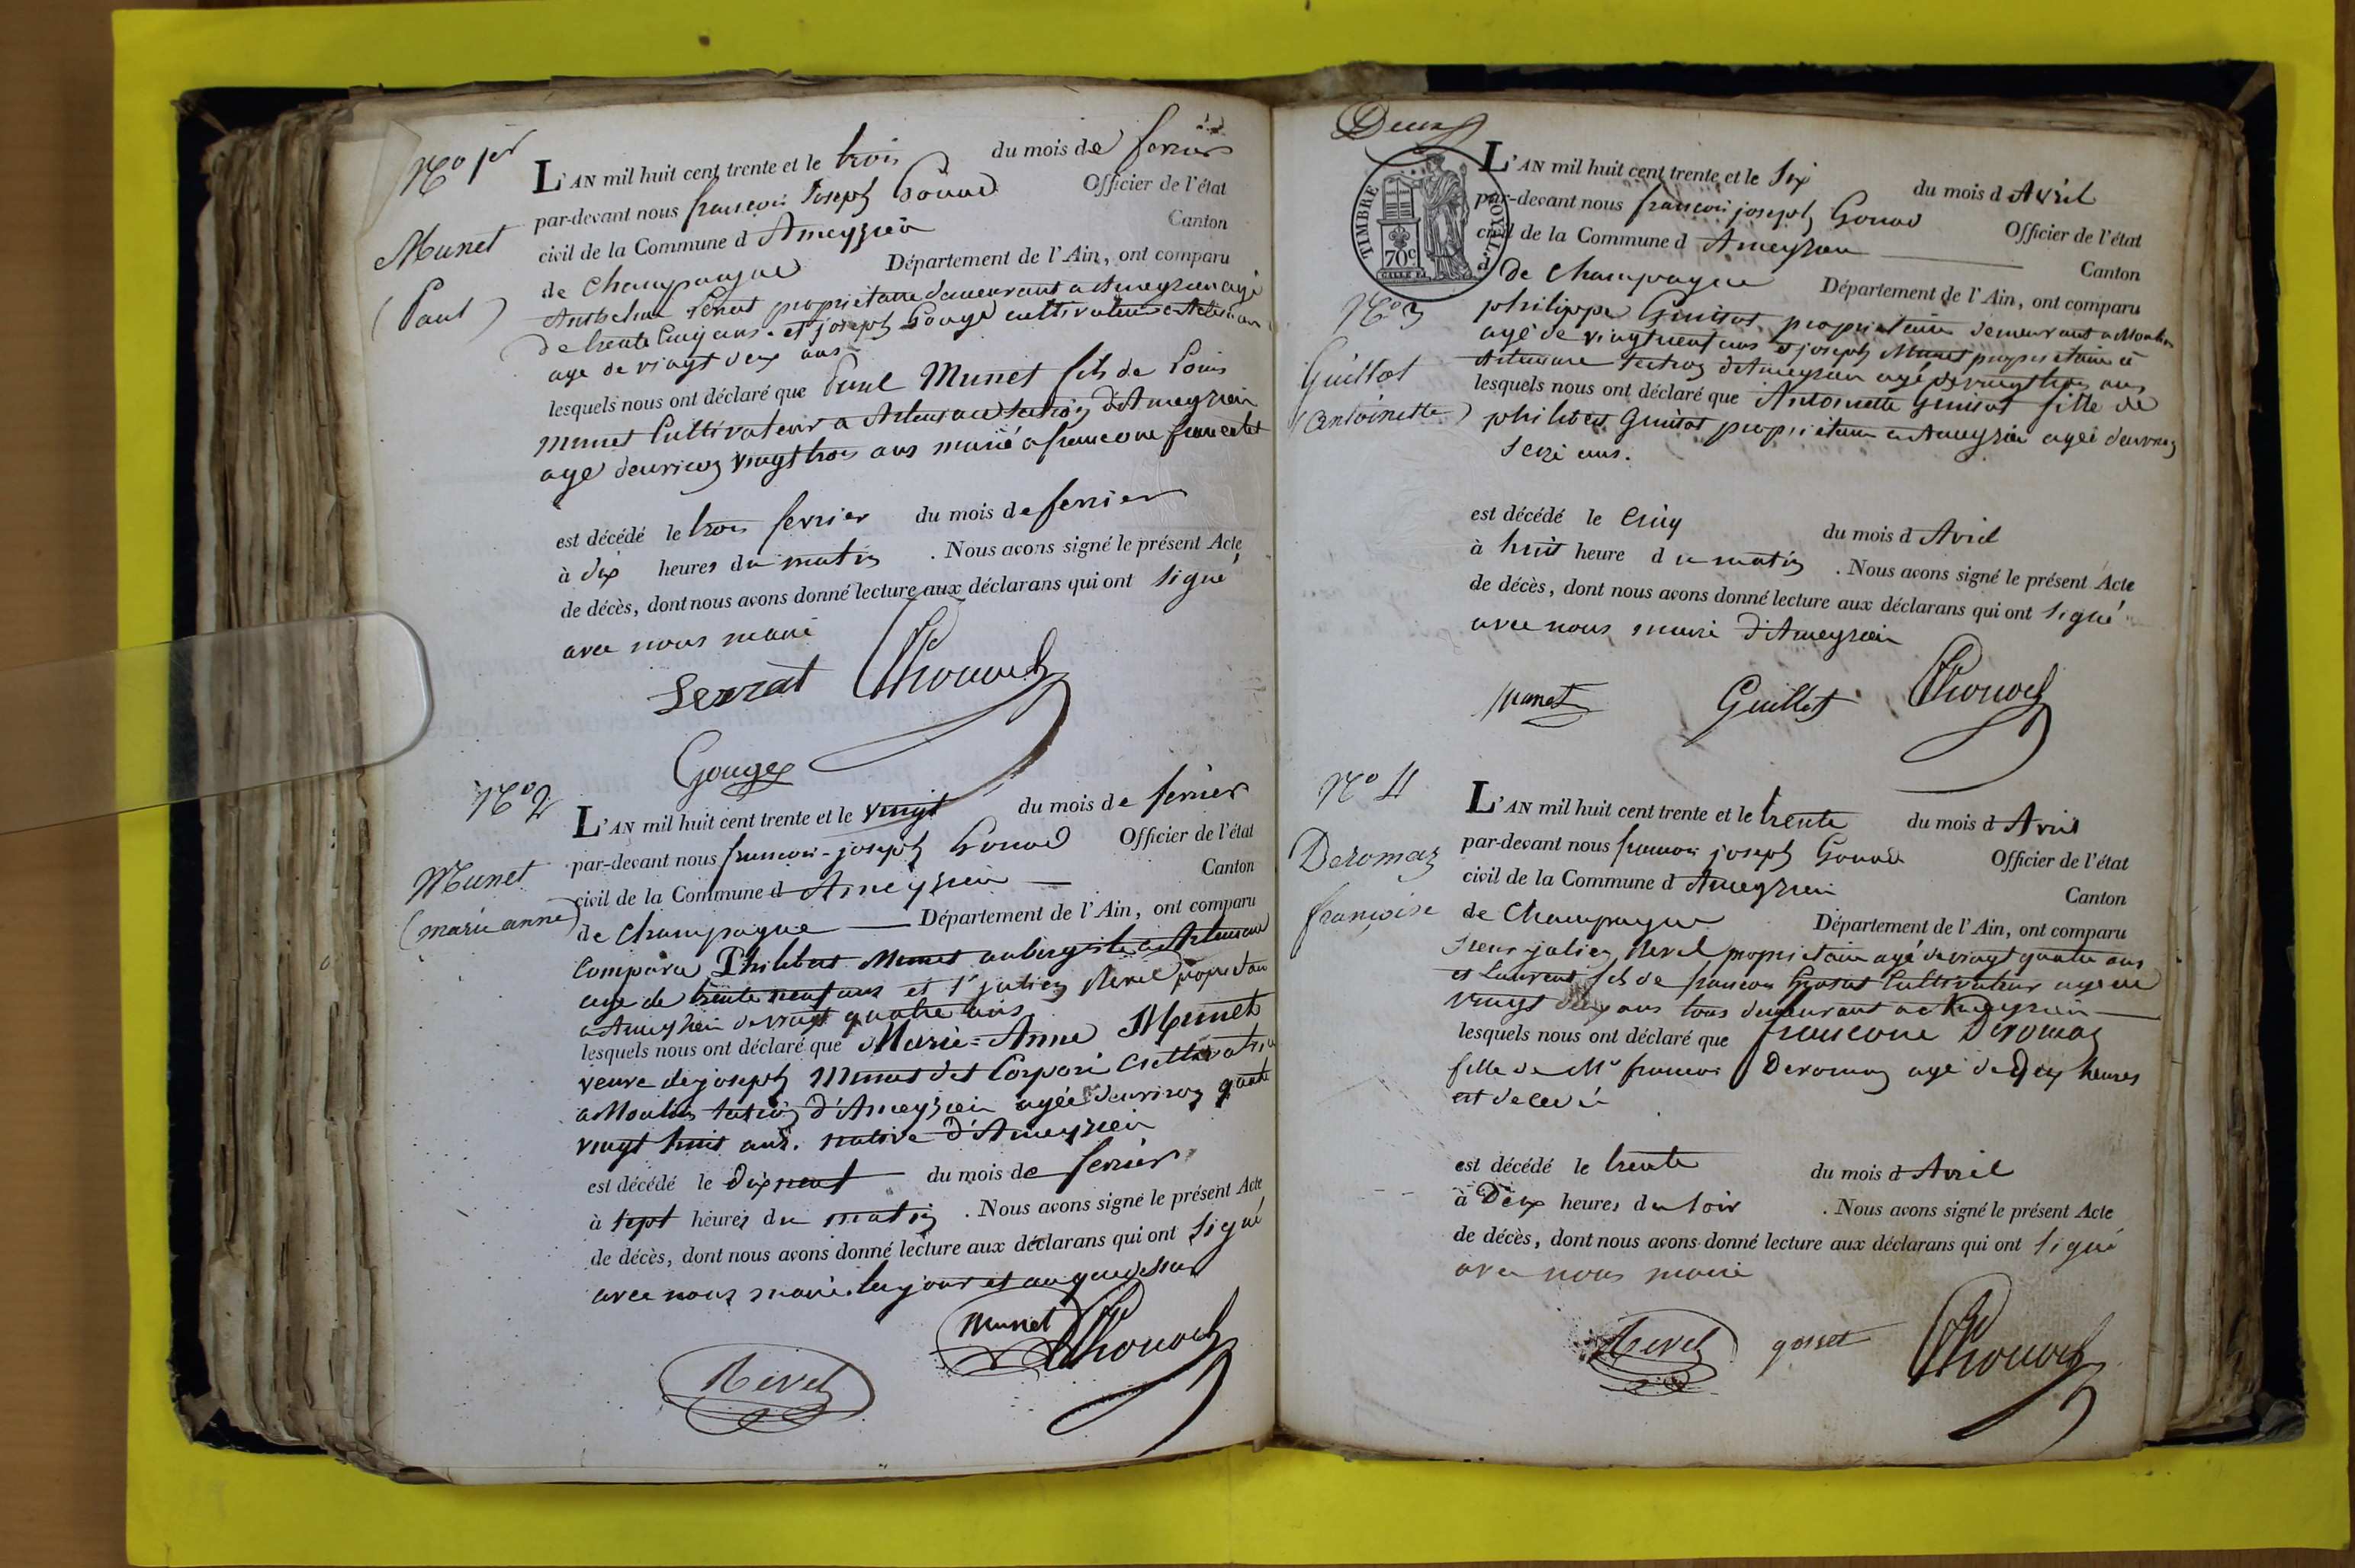 No 1er
Munet
(Paul)
L'AN mil huit cent trente et le trois du mois de fevrier
par-devant nous francois Joseph Gonod Officier de l'état
civil de la Commune d Ameyzieu Canton
de Champagne Département de l'Ain, ont comparu
Anthelme proprietaire demeurant a Ameyzieu agé
de trente cinq ans et joseph Gouge cultivateur
age de vingt deux ans
lesquels nous ont déclaré que Paul Munet fils de Louis
munet Cultivateur a section d'Ameyzieu
agé d'environ vingt trois ans marié a francoise
est décédé le trois fevrier du mois de fevrier
à dix heures du matin . Nous avons signé le présent Acte
de décès, dont nous avons donné lecture aux déclarans qui ont signé
avec nous maire
Serrat
Gouge
No 2
Munet
(marie anne)
L'AN mil huit cent trente et le vingt du mois de fevrier
par-devant nous francois-joseph Gonod Officier de l'état
civil de la Commune d Ameyzieu Canton
de Champagne Département de l'Ain, ont comparu
Comparu Philibert Munet aubergiste
age de trente neuf ans et Sr julien Revel proprietaire
a Ameyzieu de vingt quatre ans
lesquels nous ont déclaré que Marie=Anne Munet
veuve de joseph Munet dit
a Moulin section d'Ameyzieu agée d'environ quatre
vingt huit ans. native d'Ameyzieu
est décédé le dix neuf du mois de fevrier
à sept heures du matin . Nous avons signé le présent Acte
de décès, dont nous avons donné lecture aux déclarans qui ont signé
avec nous maire les jour et an que dessus
munet
Revel
Deux
TIMBRE ROYAL
70c
No 3
Guillot
(antoinette)
L'AN mil huit cent trente et le six du mois d Avril
par-devant nous francois joseph Gonod Officier de l'état
civil de la Commune d Ameyzieu Canton
de Champagne Département de l'Ain, ont comparu
philippe Guillot proprietaire demeurant a Moulin
agé de vingt neuf ans et joseph Munet proprietaire a
section d'Ameyzieu agé de vingt trois ans
lesquels nous ont déclaré que Antoinette Guillot fille de
philibert Guillot proprietaire a Ameyzieu agée d'environ
seize ans.
est décédé le cinq du mois d Avril
à huit heure du matin . Nous avons signé le présent Acte
de décès, dont nous avons donné lecture aux déclarans qui ont signé
avec nous maire d'Ameyzieu
munet Guillot
No 4
Deromaz
françoise
L'AN mil huit cent trente et le trente du mois d Avril
par-devant nous francois joseph Gonod Officier de l'état
civil de la Commune d Ameyzieu Canton
de Champagne Département de l'Ain, ont comparu
sieur julien Revel proprietaire agé de vingt quatre ans
et Laurent fils de francois Cultivateur agé de
vingt deux ans tous demeurant a Ameyzieu
lesquels nous ont déclaré que francoise Deromaz
fille de Mr francois Deromaz agé de dix heures
est decedé
est décédé le trente du mois d Avril
à Deux heures du soir . Nous avons signé le présent Acte
de décès, dont nous avons donné lecture aux déclarans qui ont signé
avec nous maire
Revel gosset